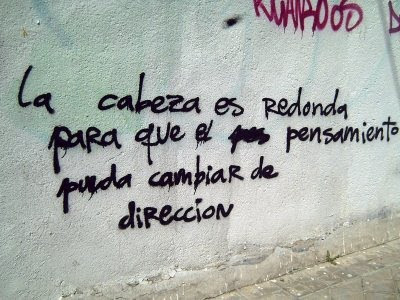 La cabeza es redonda
para que el pensamiento
pueda cambiar de
direccion